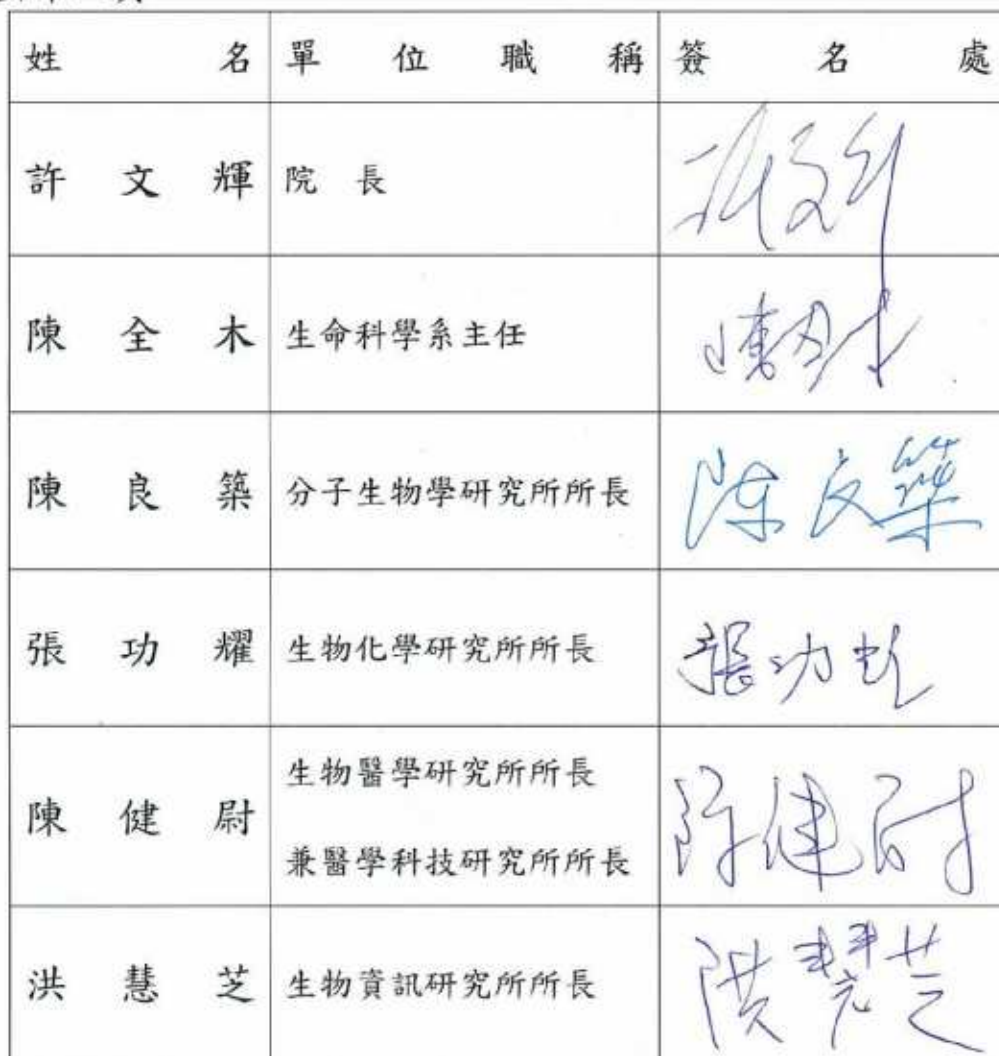 姓名 單位職稱 簽名處
許文輝 院長 許文輝
陳全木 生命科學系主任 陳全木
陳良築 分子生物學研究所所長 陳良築
張功耀 生物化學研究所所長 張功耀
陳健尉 生物醫學研究所所長
兼醫學科技研究所所長 陳健尉
洪慧芝 生物資訊研究所所長 洪慧芝